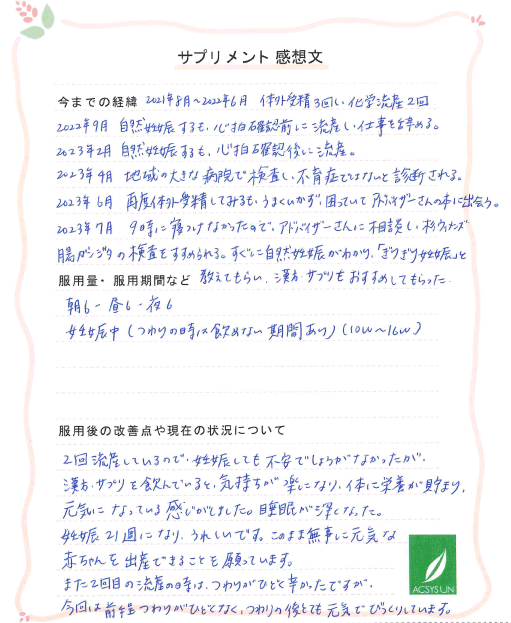 サプリメント 感想文
今までの経緯 2021年8月～2022年6月 体外受精3回し 化学流産2回
2022年9月 自然妊娠するも、心拍確認前に流産し仕事を辞める。
2023年2月 自然妊娠するも、心拍確認後に流産。
2023年4月 地域の大きな病院で検査し、不育症ではないと診断される。
2023年6月 再度体外受精してみるも、うまくいかず、困っていてアドバイザーさんの本に出会う。
2023年7月 9時に寝つけなかったので、アドバイザーさんに相談し、杉ウィメンズ
腸カンジダの検査をすすめられる。すぐに自然妊娠がわかり、「ぎりぎり妊娠」と
服用量・服用期間など 教えてもらい、漢方、サプリをおすすめしてもらった
朝6-昼6-夜6
妊娠中（つわりの時は飲めない期間あり）（10w～16w）
服用後の改善点や現在の状況について
2回流産しているので、妊娠しても不安でしょうがなかったが、
漢方、サプリを飲んでいると、気持ちが楽になり、体に栄養が貯まり、
元気になっている感じがしました。睡眠が深くなった。
妊娠21週になり、うれしいです。このまま無事に元気な
赤ちゃんを出産できることを願っています。
また2回目の流産の時は、つわりがひどく辛かったですが、
今回は前程つわりがひどくなく、つわりの後とても元気でびっくりしています。
ACSYSUN